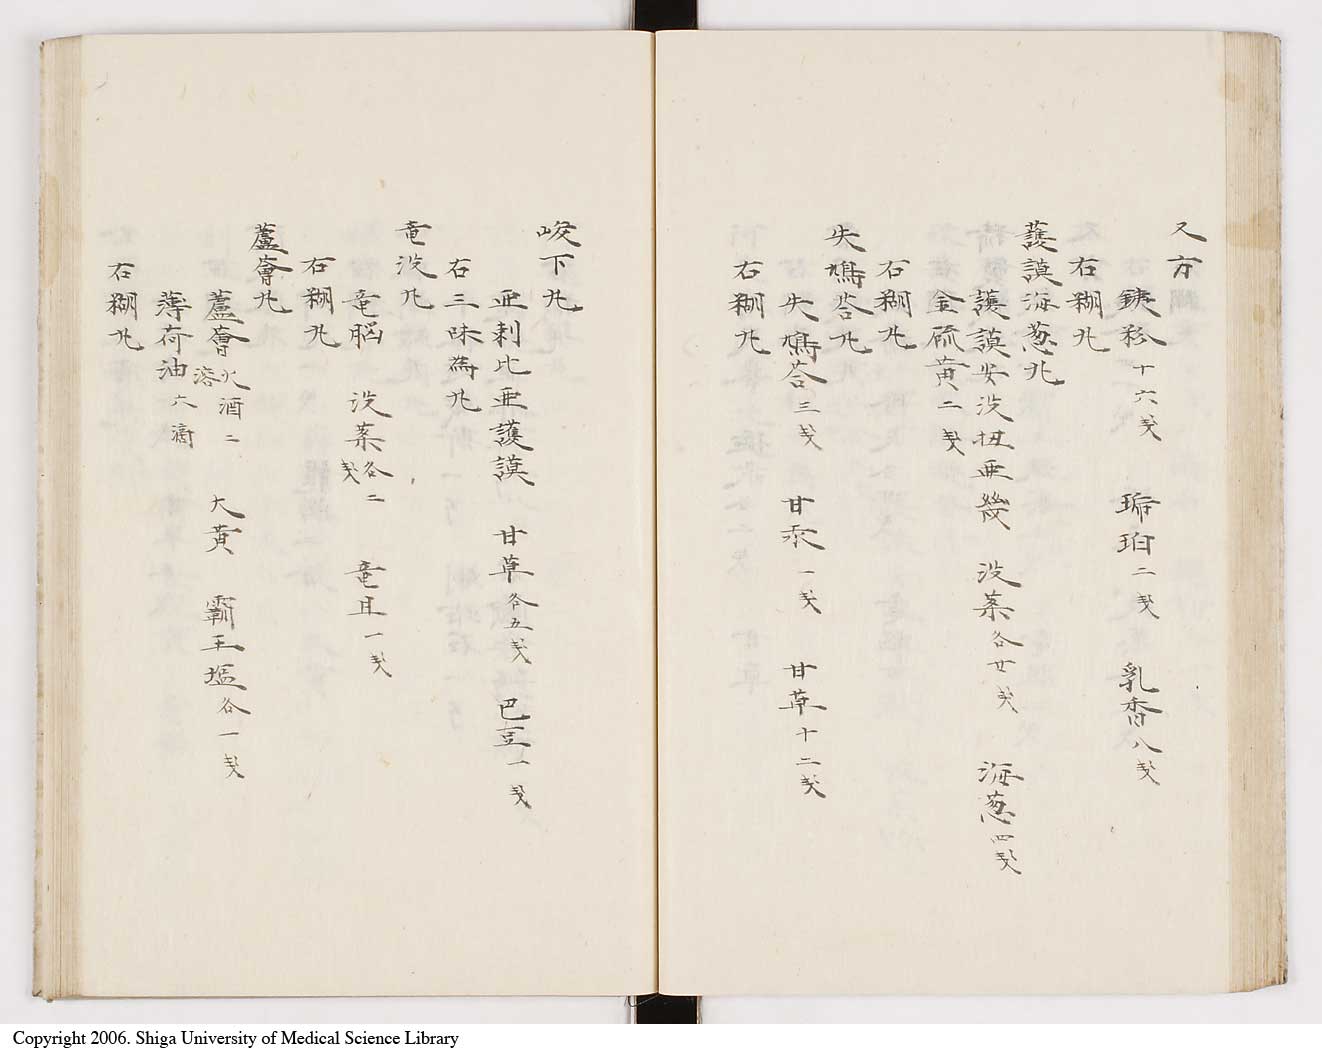 又方
銕粉十六戔 琥珀二戔 乳香八戔
右糊丸
護謨海葱丸
護謨安没扭亜幾 没薬各廿戔 海葱四戔
金硫黄二戔
右糊丸
失鳩答丸
失鳩答三戔 甘汞一戔 甘草十二戔
右糊丸
峻下丸
亜剌比亜護謨 甘草各五戔 巴豆一戔
右三味為丸
竜没丸
竜脳 没薬各二戔 竜丑一戔
右糊丸
蘆薈丸
蘆薈火酒二溶 大黄 覇王塩各一戔
薄荷油六滴
右糊丸
Copyright 2006. Shiga University of Medical Science Library